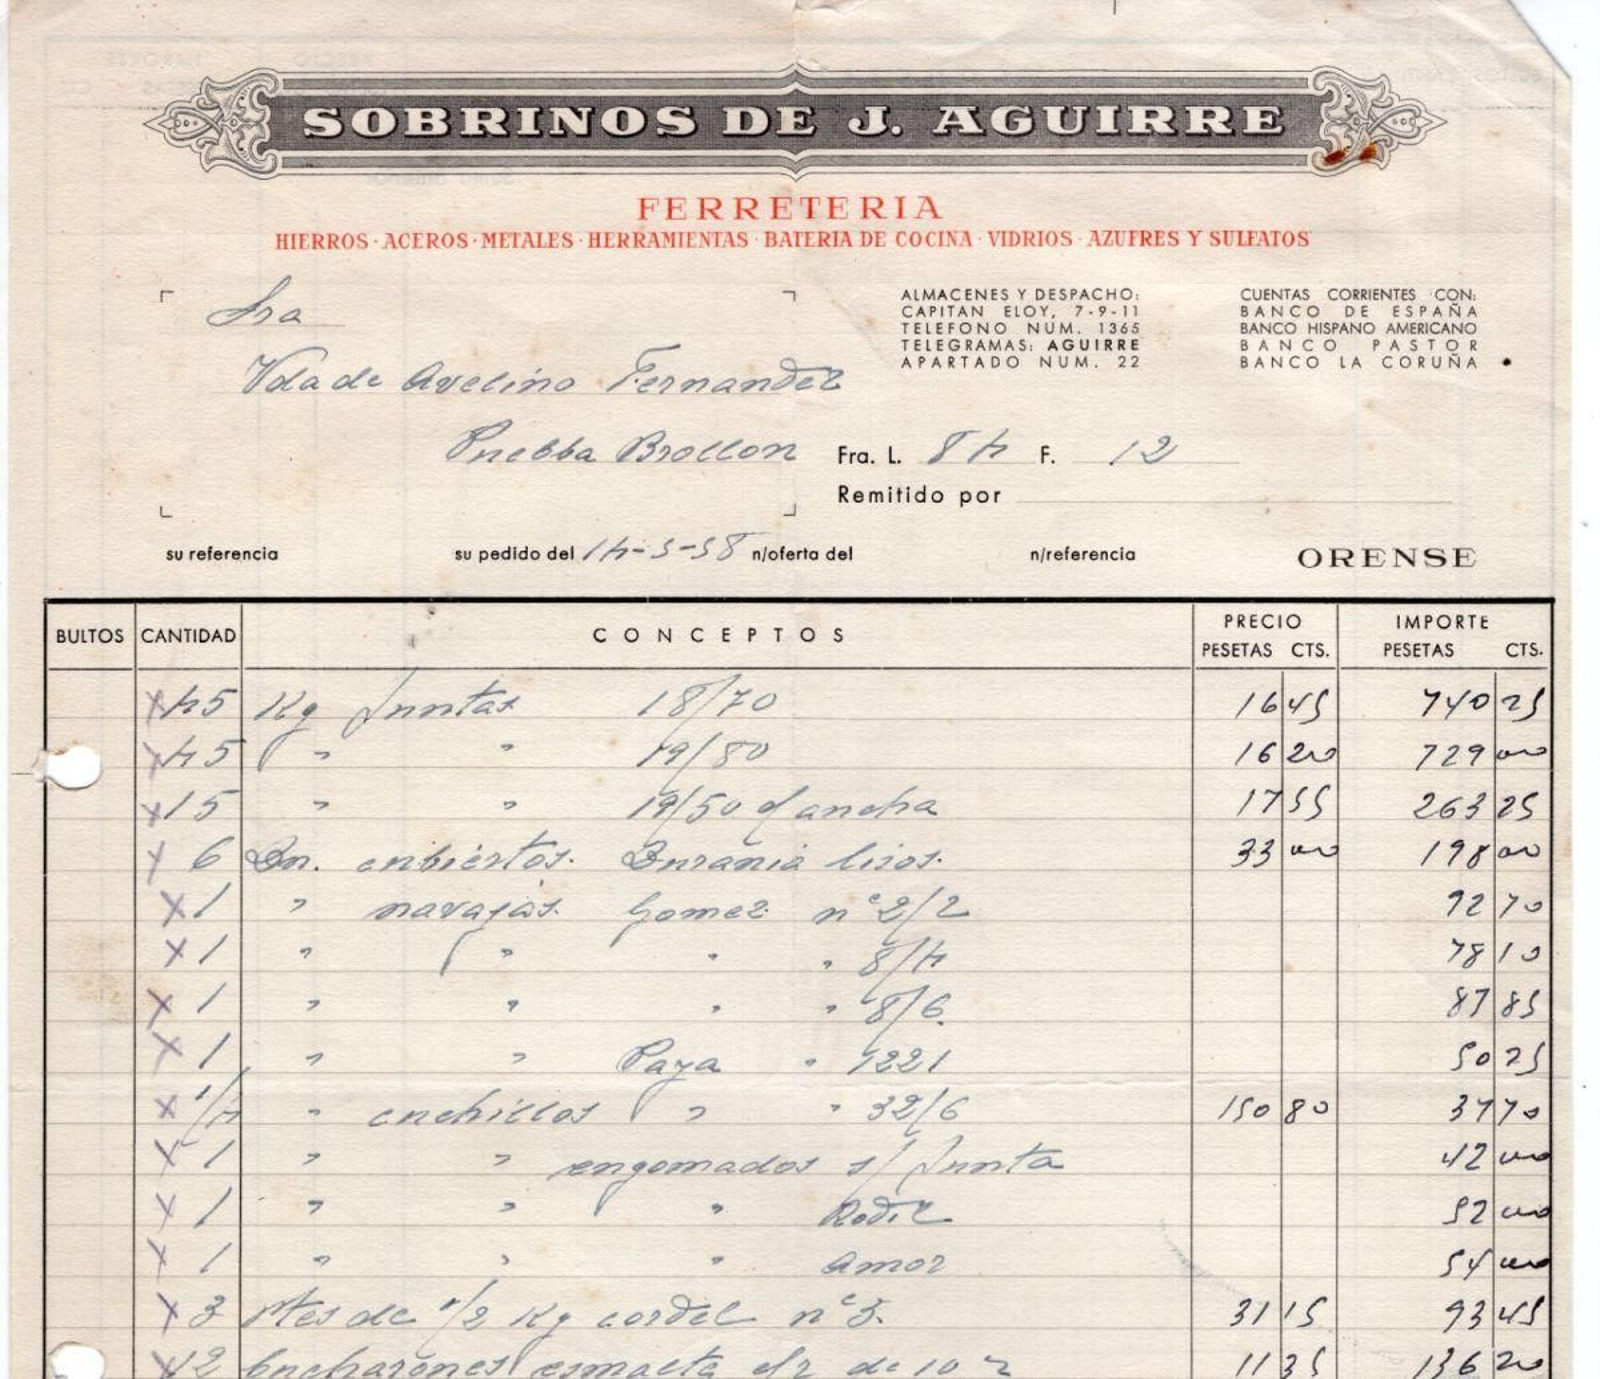 SOBRINOS DE J. AGUIRRE
FERRETERIA
HIERROS · ACEROS · METALES · HERRAMIENTAS · BATERIA DE COCINA · VIDRIOS · AZUFRES Y SULFATOS
Sra
Vda de Avelino Fernandez
Puebba Brollon
ALMACENES Y DESPACHO:
CAPITAN ELOY, 7-9-11
TELEFONO NUM. 1365
TELEGRAMAS: AGUIRRE
APARTADO NUM. 22
CUENTAS CORRIENTES CON:
BANCO DE ESPAÑA
BANCO HISPANO AMERICANO
BANCO PASTOR
BANCO LA CORUÑA
Fra. L. 84 F. 12
Remitido por
su referencia su pedido del 14-5-58 n/oferta del n/referencia ORENSE
BULTOS CANTIDAD CONCEPTOS PRECIO PESETAS CTS. IMPORTE PESETAS CTS.
x 45 Kg Puntas 18/70 16 45 740 25
x 45 " " 19/80 16 20 729 00
x 15 " " 19/50 ancha 17 55 263 25
x 6 Dn. cubiertos lisos. 33 00 198 00
x 1 " navajas. Gomez nº 2/2 92 70
x 1 " " " " 8/4 78 10
x 1 " " " " 8/6 87 85
x 1 " " Paya " 1221 50 25
x 1/4 " cuchillos " " 32/6 150 80 37 70
x 1 " " engomados s/ Punta 42 00
x 1 " " " Rodil 52 00
x 1 " " " Amor 54 00
x 3 Ptes de 1/2 Kg cordel nº 5. 31 15 93 45
x 12 Cucharones esmalte de 10 11 35 136 20